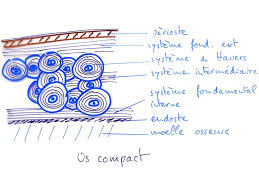 périoste
système fond. ext
système de Havers
système intermédiaire
système fondamental
interne
endoste
moelle osseuse
Os compact